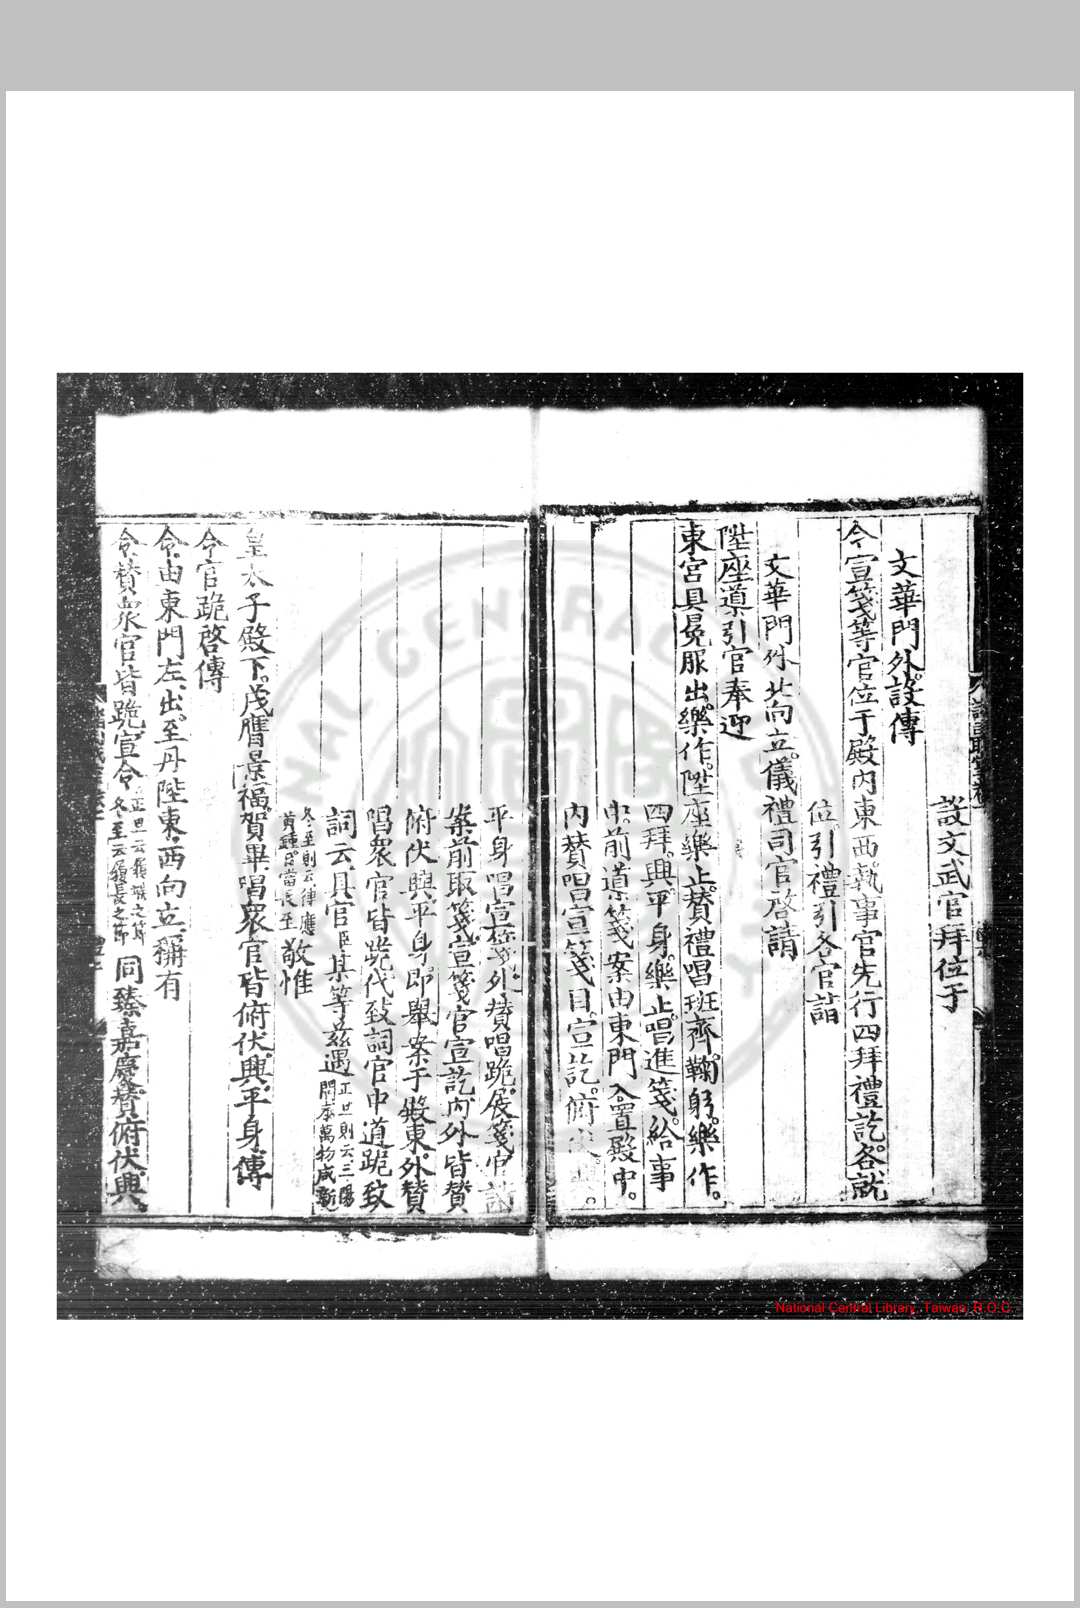 設文武官拜位于
文華門外設傳
令宣箋等官位于殿內東西執事官先行四拜禮訖各就
位引禮引各官詣
文華門外北向立儀禮司官啓請
陞座導引官奉迎
東宮具冕服出樂作陞座樂止贊禮唱班齊鞠躬樂作
四拜興平身樂止唱進箋給事
中前導箋案由東門入置殿中
內贊唱宣箋目宣訖俯
平身唱宣箋外贊唱跪展箋官詣
案前取箋宣箋官宣訖內外皆贊
俯伏興平身即舉案于殿東外贊
唱衆官皆跪代致詞官中道跪致
詞云具官臣某等兹遇正旦則云三陽開泰萬物咸新
冬至則云律應黃鍾日當長至敬惟
皇太子殿下茂膺景福賀畢唱衆官皆俯伏興平身傳
令官跪啓傳
令由東門左出至丹陛東西向立稱有
令贊衆官皆跪宣令正旦云履端之節冬至云履長之節同臻嘉慶贊俯伏興
National Central Library, Taiwan, R.O.C.